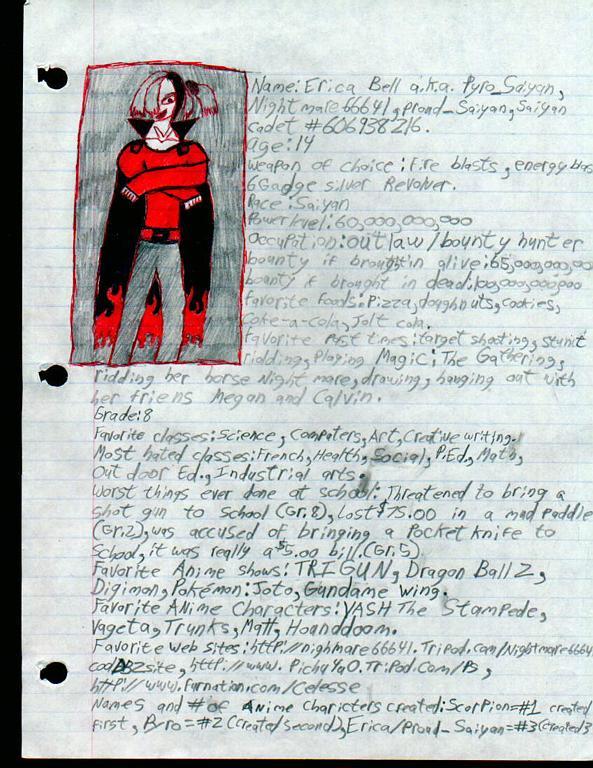 Name: Erica Bell a.k.a. Pyro_Saiyan,
Nightmare66641, proud_Saiyan, Saiyan
cadet #606938216.
age: 14
weapon of choice: Fire blasts, energy blas
6Gadge silver Revolver.
Race: Saiyan
Power level: 60,000,000,000
Occupation: outlaw/bounty hunter
bounty if brought in alive: 65,000,000,00
bounty if brought in dead:
favorite foods: Pizza, doughnuts, cookies,
Coke-a-cola, Jolt cola.
favorite past times: target shooting, stunit
ridding, Playing Magic: The Gathering,
ridding her horse Night mare, drawing, hanging out with
her friens Megan and Calvin.
Grade: 8
Favorite classes: Science, Computers, Art, Creative writing.
Most hated classes: French, Health, Social, P.Ed, Math,
Out door Ed., Industrial arts.
worst things ever done at school: Threatened to bring a
shot gun to school (Gr.8), lost $75.00 in a mad paddle
(Gr.2), was accused of bringing a Pocket knife to
school, it was really a $5.00 bill. (Gr.5)
Favorite Anime shows: TRIGUN, Dragon Ball Z,
Digimon, Pokémon: Joto, Gundame wing.
Favorite ANime Characters: VASH The Stampede,
Vageta, Trunks, Matt, Hounddoom.
Favorite web sites: http://nighmare66641.Tripod.com/Nightmare6664
cool DBZ site, http://www.PichuYaO.TriPod.Com/PS,
http://www.Furnation.com/Celesse
Names and # of Anime Charicters created: Scorpion=#1 created
first, Byro=#2 (created second), Erica/Proud_Saiyan=#3 (created 3